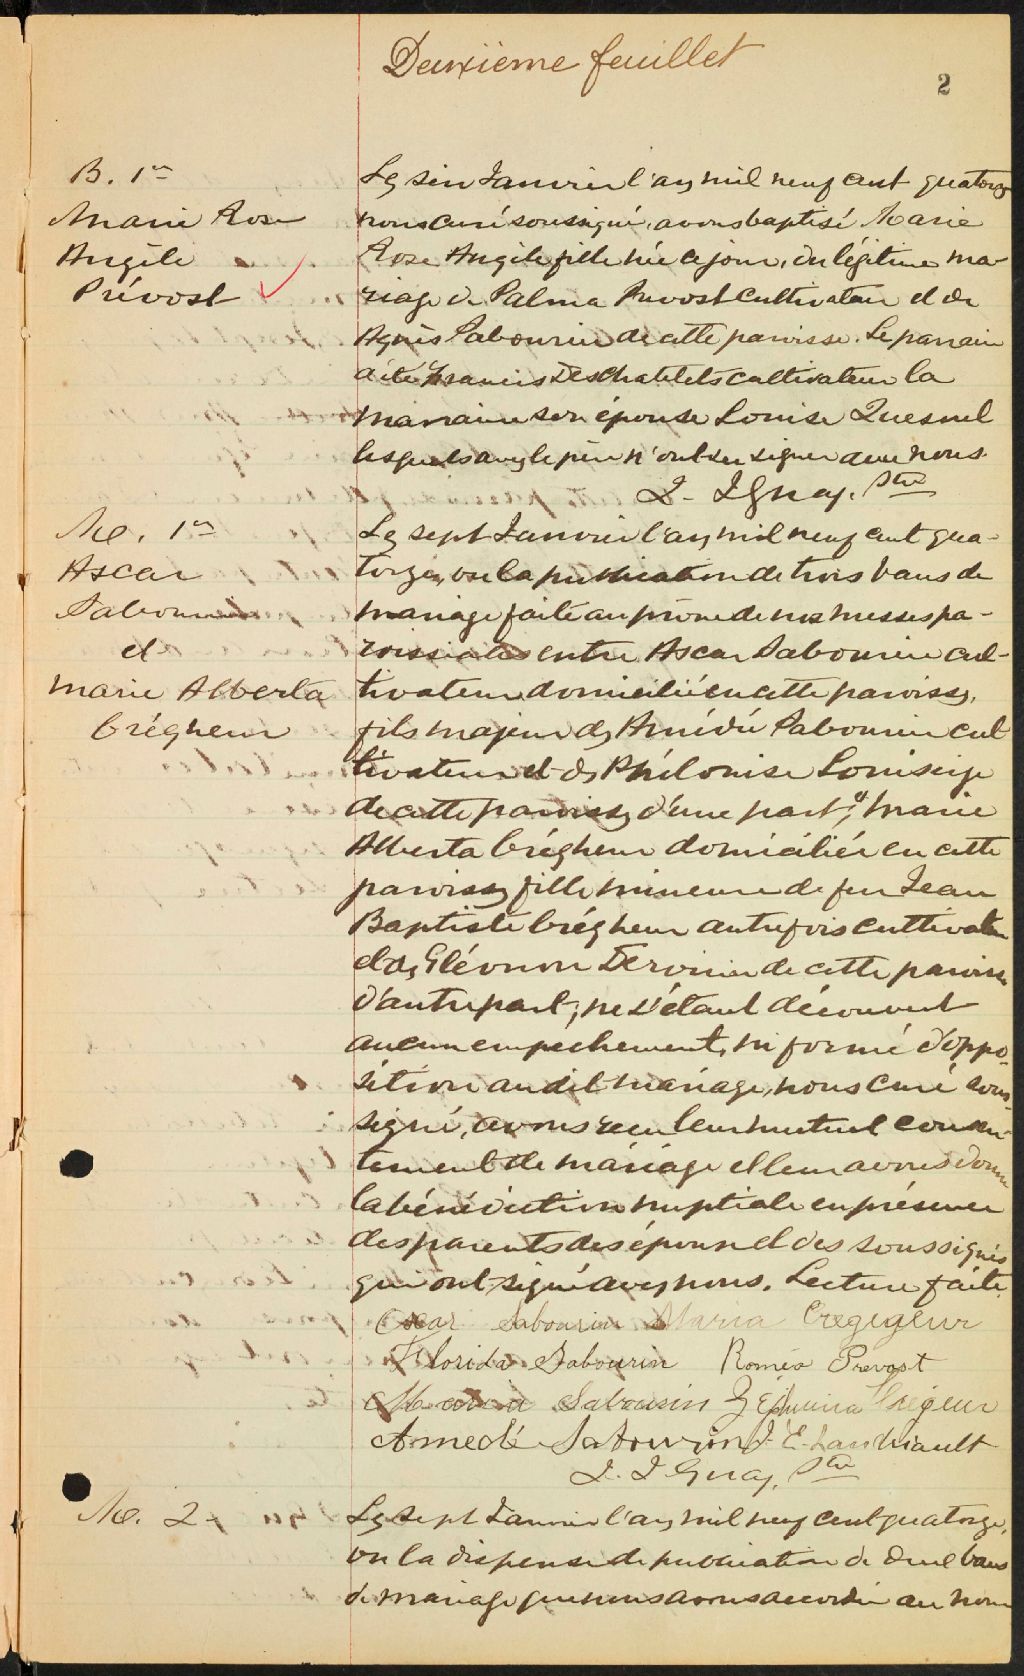 Deuxième feuillet
2
B. 1er
Marie Rose
Angèle
Prévost
Le six Janvier l'an mil neuf cent quatorze
nous curé soussigné, avons baptisé Marie
Rose Angèle fille née ce jour, du légitime ma-
riage de Palma Prévost cultivateur et de
Agnès Sabourin de cette paroisse. Le parrain
a été Francis Deschatelets cultivateur la
marraine son épouse Louise Quesnel
lesquels avec le père n'ont su signer avec nous.
J. I Guay, Ptre
M. 1er
Ascar
Sabourin
et
Marie Alberta
Crégheur
Le sept Janvier l'an mil neuf cent qua-
torze, vu la publication de trois bans de
mariage faite au prône de nos messes pa-
roissiales entre Ascar Sabourin cul-
tivateur domicilié en cette paroisse,
fils majeur de Amédée Sabourin cul
tivateur et de Philouise Louiseige
de cette paroisse d'une part, & Marie
Alberta Crégheur domiciliée en cette
paroisse fille mineure de feu Jean
Baptiste Crégheur autrefois cultivateur
et de Eléonor Derouin de cette paroisse
d'autre part; ne s'étant découvert
aucun empechement, ni formé d'oppo-
sition au dit mariage, nous curé sous-
signé, avons reçu leur mutuel consen-
tement de mariage et leur avons donné
la bénédiction nuptiale en présence
des parents des époux et des soussignés
qui ont signé avec nous. Lecture faite
Oscar Sabourin Maria Cregigeur
Florida Sabourin Roméo Prevost
Sabourin Crégeur
Amedé Sabourin J. E. Landriault
J. I Guay, Ptre
M. 2
Le sept Janvier l'an mil neuf cent quatorze,
vu la dispense de publication de deux bans
de mariage que nous avons accordée au nom